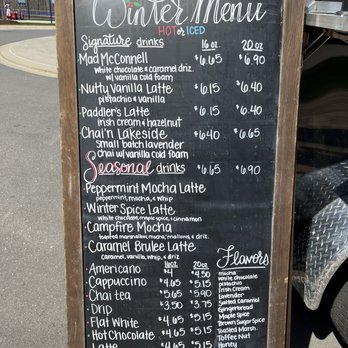 Winter Menu
HOT or ICED
Signature drinks 16 oz. 20 oz
Mad McConnell $6.65 $6.90
white chocolate & caramel driz.
w/ vanilla cold foam
Nutty Vanilla Latte $6.15 $6.40
pistachio & vanilla
Paddler's Latte $6.15 $6.40
irish cream & hazelnut
Chai'n Lakeside $6.40 $6.65
Small batch lavender
chai w/ vanilla cold foam
Seasonal drinks $6.65 $6.90
Peppermint Mocha Latte
peppermint, mocha, & whip
Winter Spice Latte
white chocolate, maple spice, & cinnamon
Campfire Mocha
toasted marshmallow, mocha, mallows, & driz.
Caramel Brulee Latte
Caramel, vanilla, whip, & driz
16oz. 20oz
• Americano $4 $4.50
• Cappuccino $4.65 $5.15
• Chai tea $5.65 $5.90
• Drip $3.50 $3.75
• Flat White $4.65 $5.15
• Hot Chocolate $4.65 $5.15
Latte $4.65 $5.15
Flavors
mocha
white chocolate
pistachio
Irish Cream
Lavender
Salted Caramel
Gingerbread
Maple Spice
Brown Sugar Spice
Toasted Marsh.
Toffee Nut
Honey